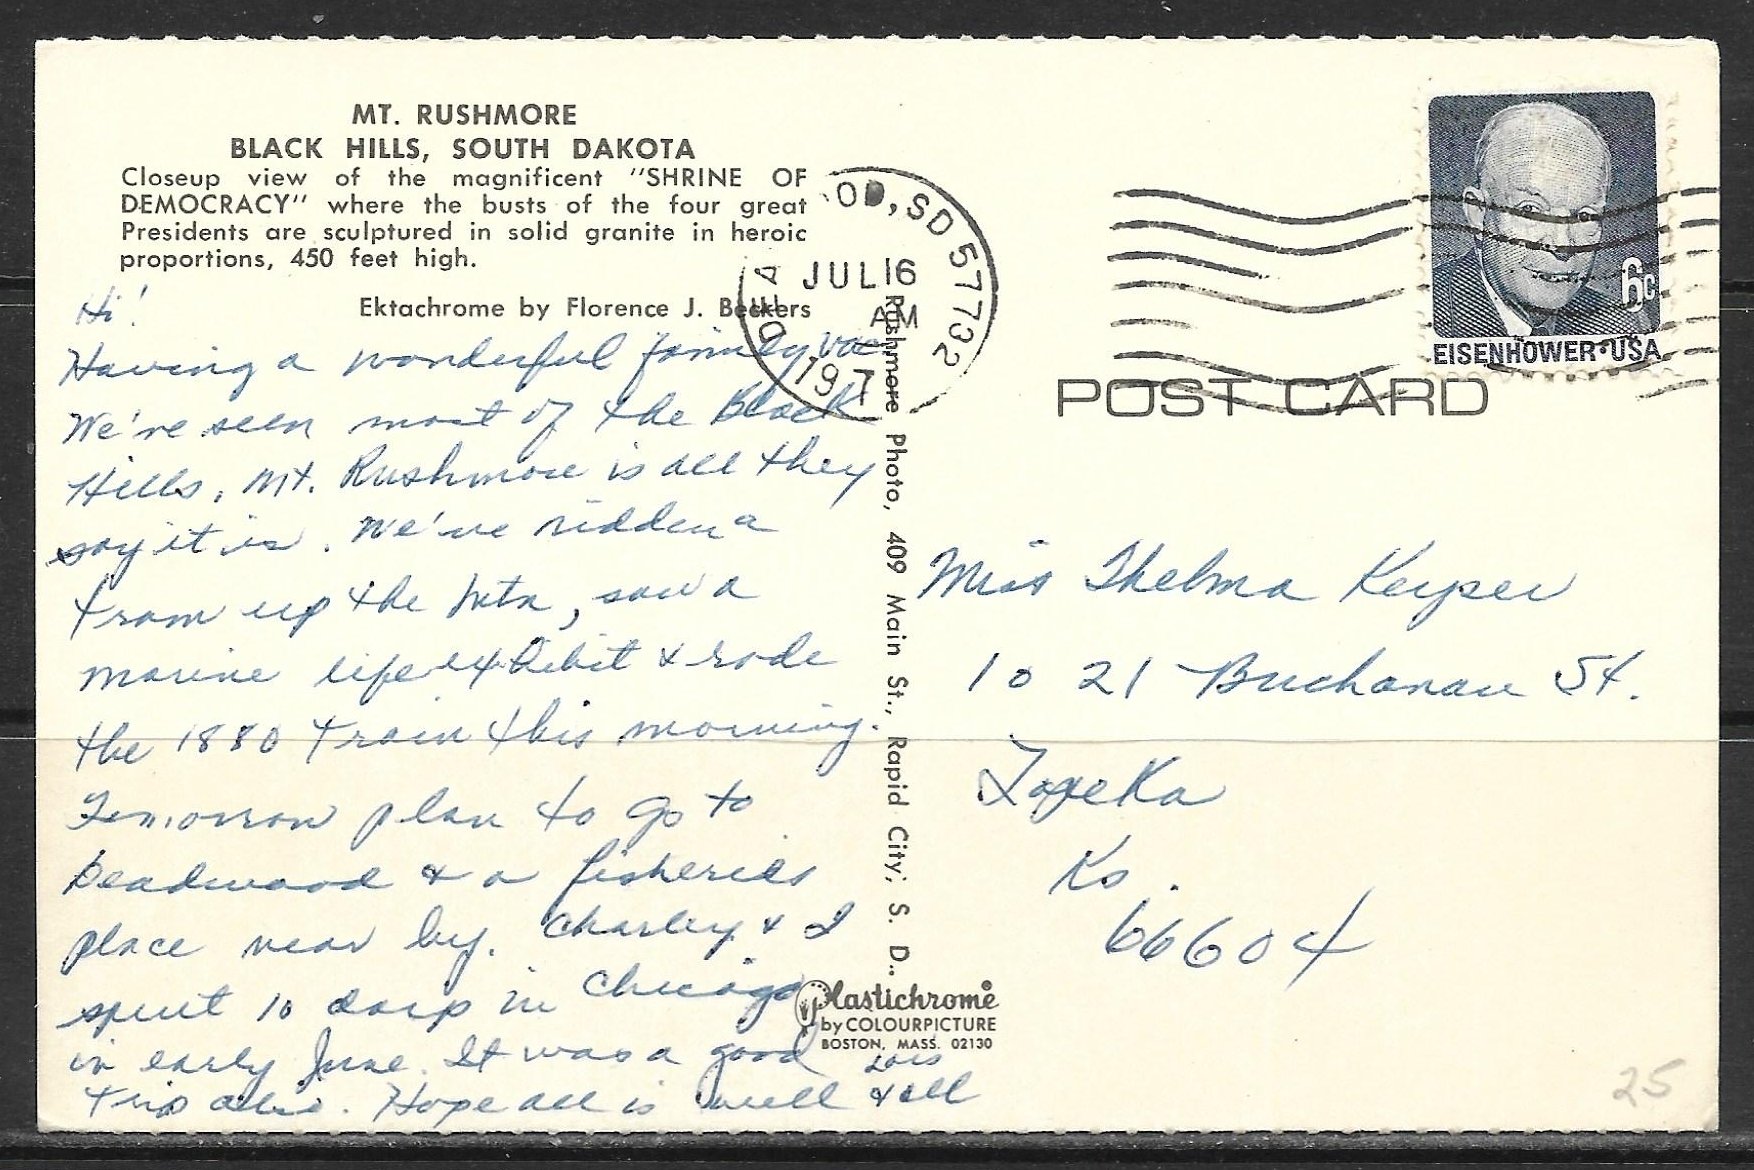 MT. RUSHMORE
BLACK HILLS, SOUTH DAKOTA
Closeup view of the magnificent "SHRINE OF
DEMOCRACY" where the busts of the four great
Presidents are sculptured in solid granite in heroic
proportions, 450 feet high.
Ektachrome by Florence J. Beckers
Hi!
Having a wonderful family vac.
We've seen most of the Black
Hills, Mt. Rushmore is all they
say it is. We've ridden a
tram up the mtn, saw a
marine life exhibit & rode
the 1880 train this morning.
Tomorrow plan to go to
Deadwood & a fisheries
place near by. Charley & I
spent 10 days in Chicago
in early June. It was a good
trip also. Hope all is well
Lois
& all
Rushmore Photo, 409 Main St., Rapid City, S. D.
Plastichrome®
by COLOURPICTURE
BOSTON, MASS. 02130
OD, SD 57732
JUL 16
AM
197
6c
EISENHOWER·USA
POST CARD
Miss Thelma Keyser
1021 Buchanan St.
Topeka
Ks.
66604
25